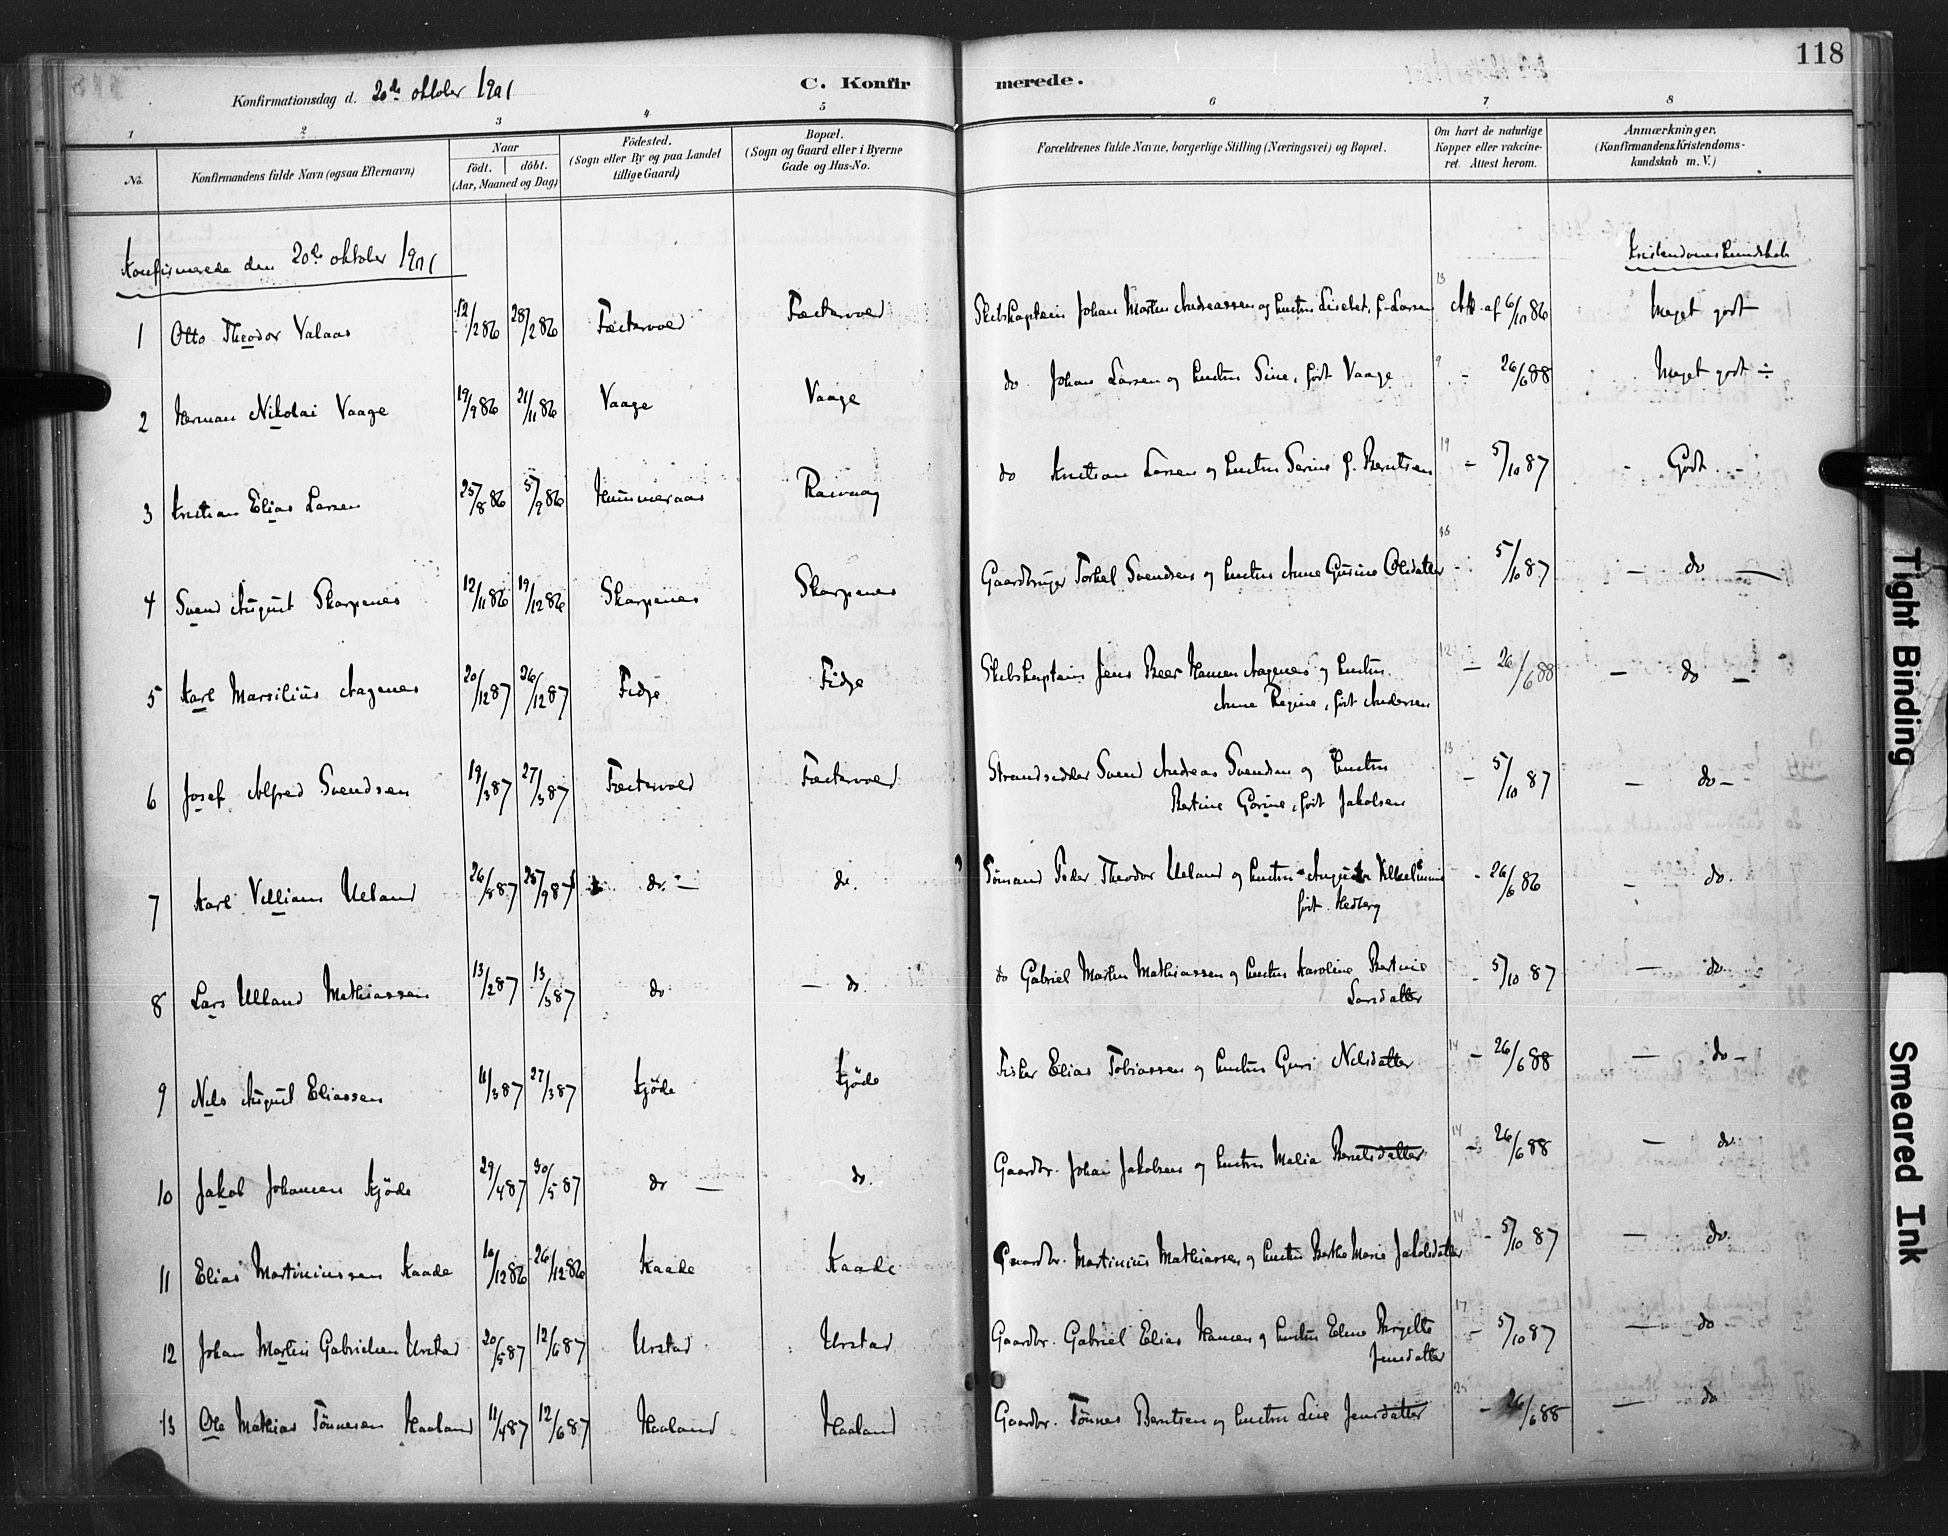 118
Konfirmationsdag d. 20de oktober 1901
C. Konfirmerede.
1 2 3 4 5 6 7 8
No.
Konfirmandens fulde Navn (ogsaa Efternavn)
Naar
födt. döbt.
(Aar, Maaned og Dag)
Födested.
(Sogn eller By og paa Landet
tillige Gaard)
Bopæl.
(Sogn og Gaard eller i Byerne
Gade og Hus-No.
Forældrenes fulde Navne, borgerlige Stilling (Næringsvei) og Bopæl.
Om havt de naturlige
Kopper eller vakcine-
ret. Attest herom.
Anmærkninger,
(Konfirmandens Kristendoms-
kundskab m. V.)
Konfirmerede den 20de oktober 1901
Kristendomskundskab
1 Otto Theodor Valaas 12/2 86 28/2 86 Johan Martin Andreassen og hustru f. Larsen Att. af 6/10 86 Meget godt
2 Herman Nikolai Vaage 19/9 86 21/11 86 Vaage Vaage do Johan Larsen og hustru Sine, født Vaage 9 - 26/6 88 Meget godt ÷
3 Kristian Elias Larsen 25/8 86 5/9 86 Hummeraas do Kristian Larsen og hustru f. Berntsen 19 - 5/10 87 - Godt -
4 Svend August Skarpenes 12/11 86 19/12 86 Skarpenes Skarpenes Gaardbruger Torkel Svendsen og hustru Anne Gurine Olsdatter - 5/10 87 - do -
5 Karl Marsilius Aagenes 20/12 87 26/12 87 Fidje Fidje Skibskaptein Jens Beer Hansen Aagenes og hustru 12 - 26/6 88 - do -
Anne Regine, født Andersen
6 Josef Alfred Svendsen 19/3 87 27/3 87 Strandsidder Svend Andreas Svendsen og hustru 13 - 5/10 87 - do -
Bertine Gorine, født Jakobsen
7 Karl Villiam Ueland 26/8 87 25/9 87 do. - do. Sömand Peder Theodor Ueland og hustru Augusta - 26/6 86 - do.
født Hedberg
8 Lars Ulland Mathiassen 13/2 87 13/3 87 do - do. do Gabriel Martin Mathiassen og hustru Karoline Bertine - 5/10 87 - do.
Larsdatter
9 Nils August Eliassen 11/3 87 27/3 87 Kjöde Kjöde Fisker Elias Tobiassen og hustru Guri Nilsdatter 14 - 26/6 88 - do -
10 Jakob Johansen Kjöde 29/4 87 30/5 87 do - do. Gaardbr. Johan Jakobsen og hustru Malia Berntsdatter 14 - 26/6 88 - do.
11 Elias Martiniussen Kaade 10/12 86 26/12 86 Kaade Kaade Gaardbr. Martinius Mathiassen og hustru Berthe Marie Jakobsdatter 14 - 5/10 87 - do.
12 Johan Martin Gabrielsen Urstad 20/5 87 12/6 87 Urstad Urstad Gaardbr. Gabriel Elias Hansen og hustru 17 - 5/10 87 - do
Jensdatter
13 Ole Mathias Tönnesen Haaland 11/4 87 12/6 87 Haaland Haaland Gaardbr. Tönnes Berntsen og hustru Line Jensdatter - 26/6 88 - do
Tight Binding
Smeared Ink